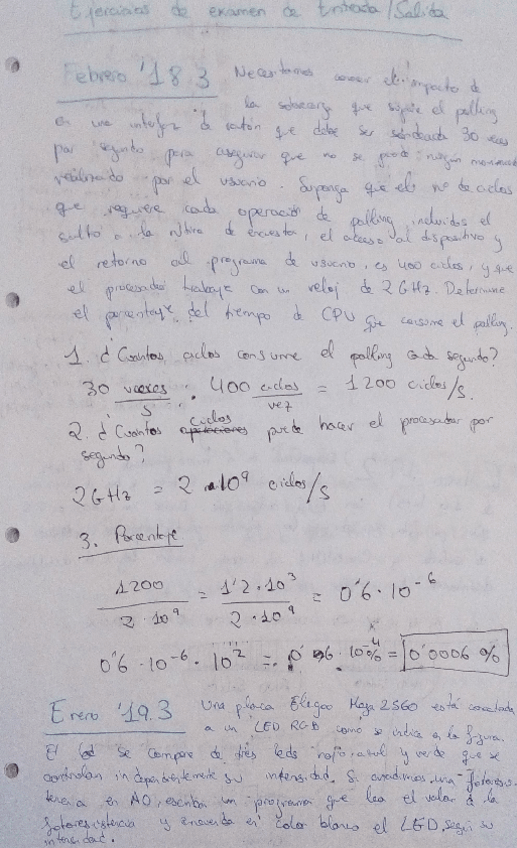 Ejercicios de examen de Entrada/Salida
Febrero '18.3 Necesitamos conocer el impacto de
la sobrecarga que supone el polling
en una interfaz de ratón que debe ser sondeada 30 veces
por segundo para asegurar que no se pierde ningún movimiento
realizado por el usuario. Suponga que el nº de ciclos
que requiere cada operación de polling, incluidos el
salto a la rutina de encuesta, el acceso al dispositivo y
el retorno al programa de usuario, es 400 ciclos, y que
el procesador trabaja con un reloj de 2 GHz. Determine
el porcentaje del tiempo de CPU que consume el polling.
1. ¿Cuantos ciclos consume el polling cada segundo?
30 veces/s · 400 ciclos/vez = 1200 ciclos/s.
2. ¿Cuantos ciclos puede hacer el procesador por
segundo?
2GHz = 2 · 10⁹ ciclos/s
3. Porcentaje
1200 / 2·10⁹ = 1'2·10³ / 2·10⁹ = 0'6·10⁻⁶
0'6·10⁻⁶·10² = 0'6·10⁻⁴% = 0'0006 %
Enero '19.3 Una placa Elegoo Mega 2560 está conectada
a un LED RGB como se indica en la figura.
El led se compone de tres leds rojo, azul y verde que se
controlan independientemente su intensidad. Si añadimos una fotoresis-
tencia en A0, escriba un programa que lea el valor de la
fotoresistencia y encienda en color blanco el LED, según su
intensidad.